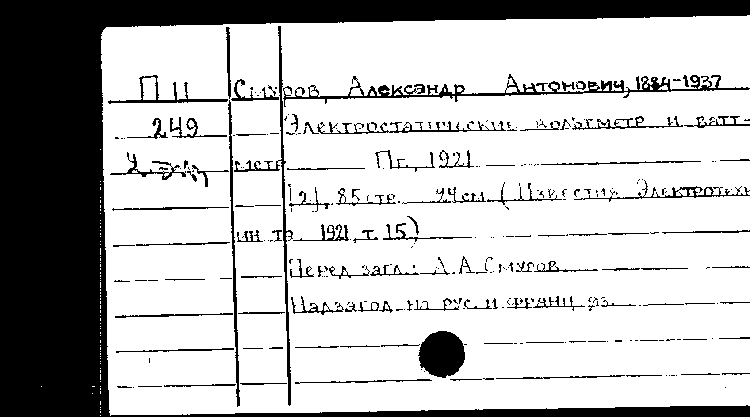 П 11 Смуров, Александр Антонович, 1884-1937
249 Электростатические вольтметр и ватт-
метр Пг., 1921
[2], 85 стр. 24 см. (Известия Электротехн
ин та 1921, т. 15)
Перед загл.: А.А Смуров
Надзагол на рус. и франц яз.